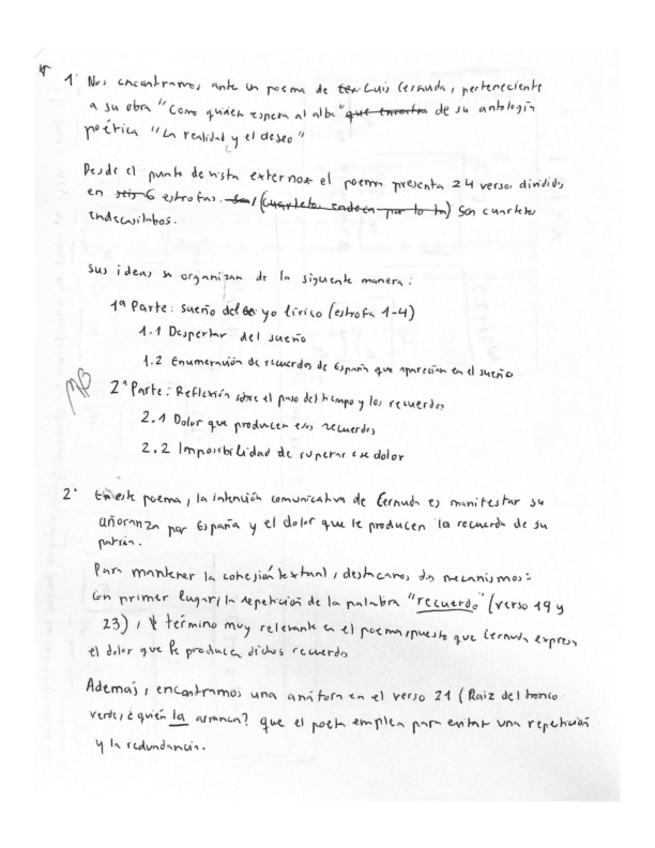 1. Nos encontramos ante un poema de Luis Cernuda, perteneciente
a su obra "Como quien espera al alba" de su antología
poética "La realidad y el deseo"
Desde el punto de vista externo el poema presenta 24 versos divididos
en 6 estrofas. Son cuartetos
endecasílabos.
sus ideas se organizan de la siguiente manera:
1ª Parte: sueño del yo lírico (estrofa 1-4)
1.1 Despertar del sueño
1.2 Enumeración de recuerdos de España que aparecían en el sueño
MB
2ª Parte: Reflexión sobre el paso del tiempo y los recuerdos
2.1 Dolor que producen esos recuerdos
2.2 Imposibilidad de superar ese dolor
2. En este poema, la intención comunicativa de Cernuda es manifestar su
añoranza por España y el dolor que le producen la recuerdo de su
patria.
Para mantener la cohesión textual, destacamos dos mecanismos:
En primer lugar, la repetición de la palabra "recuerdo" (verso 19 y
23), término muy relevante en el poema, puesto que Cernuda expresa
el dolor que le produce dichos recuerdo
Además, encontramos una anáfora en el verso 21 (Raiz del tronco
verde, ¿quién la arranca? que el poeta emplea para evitar una repetición
y la redundancia.